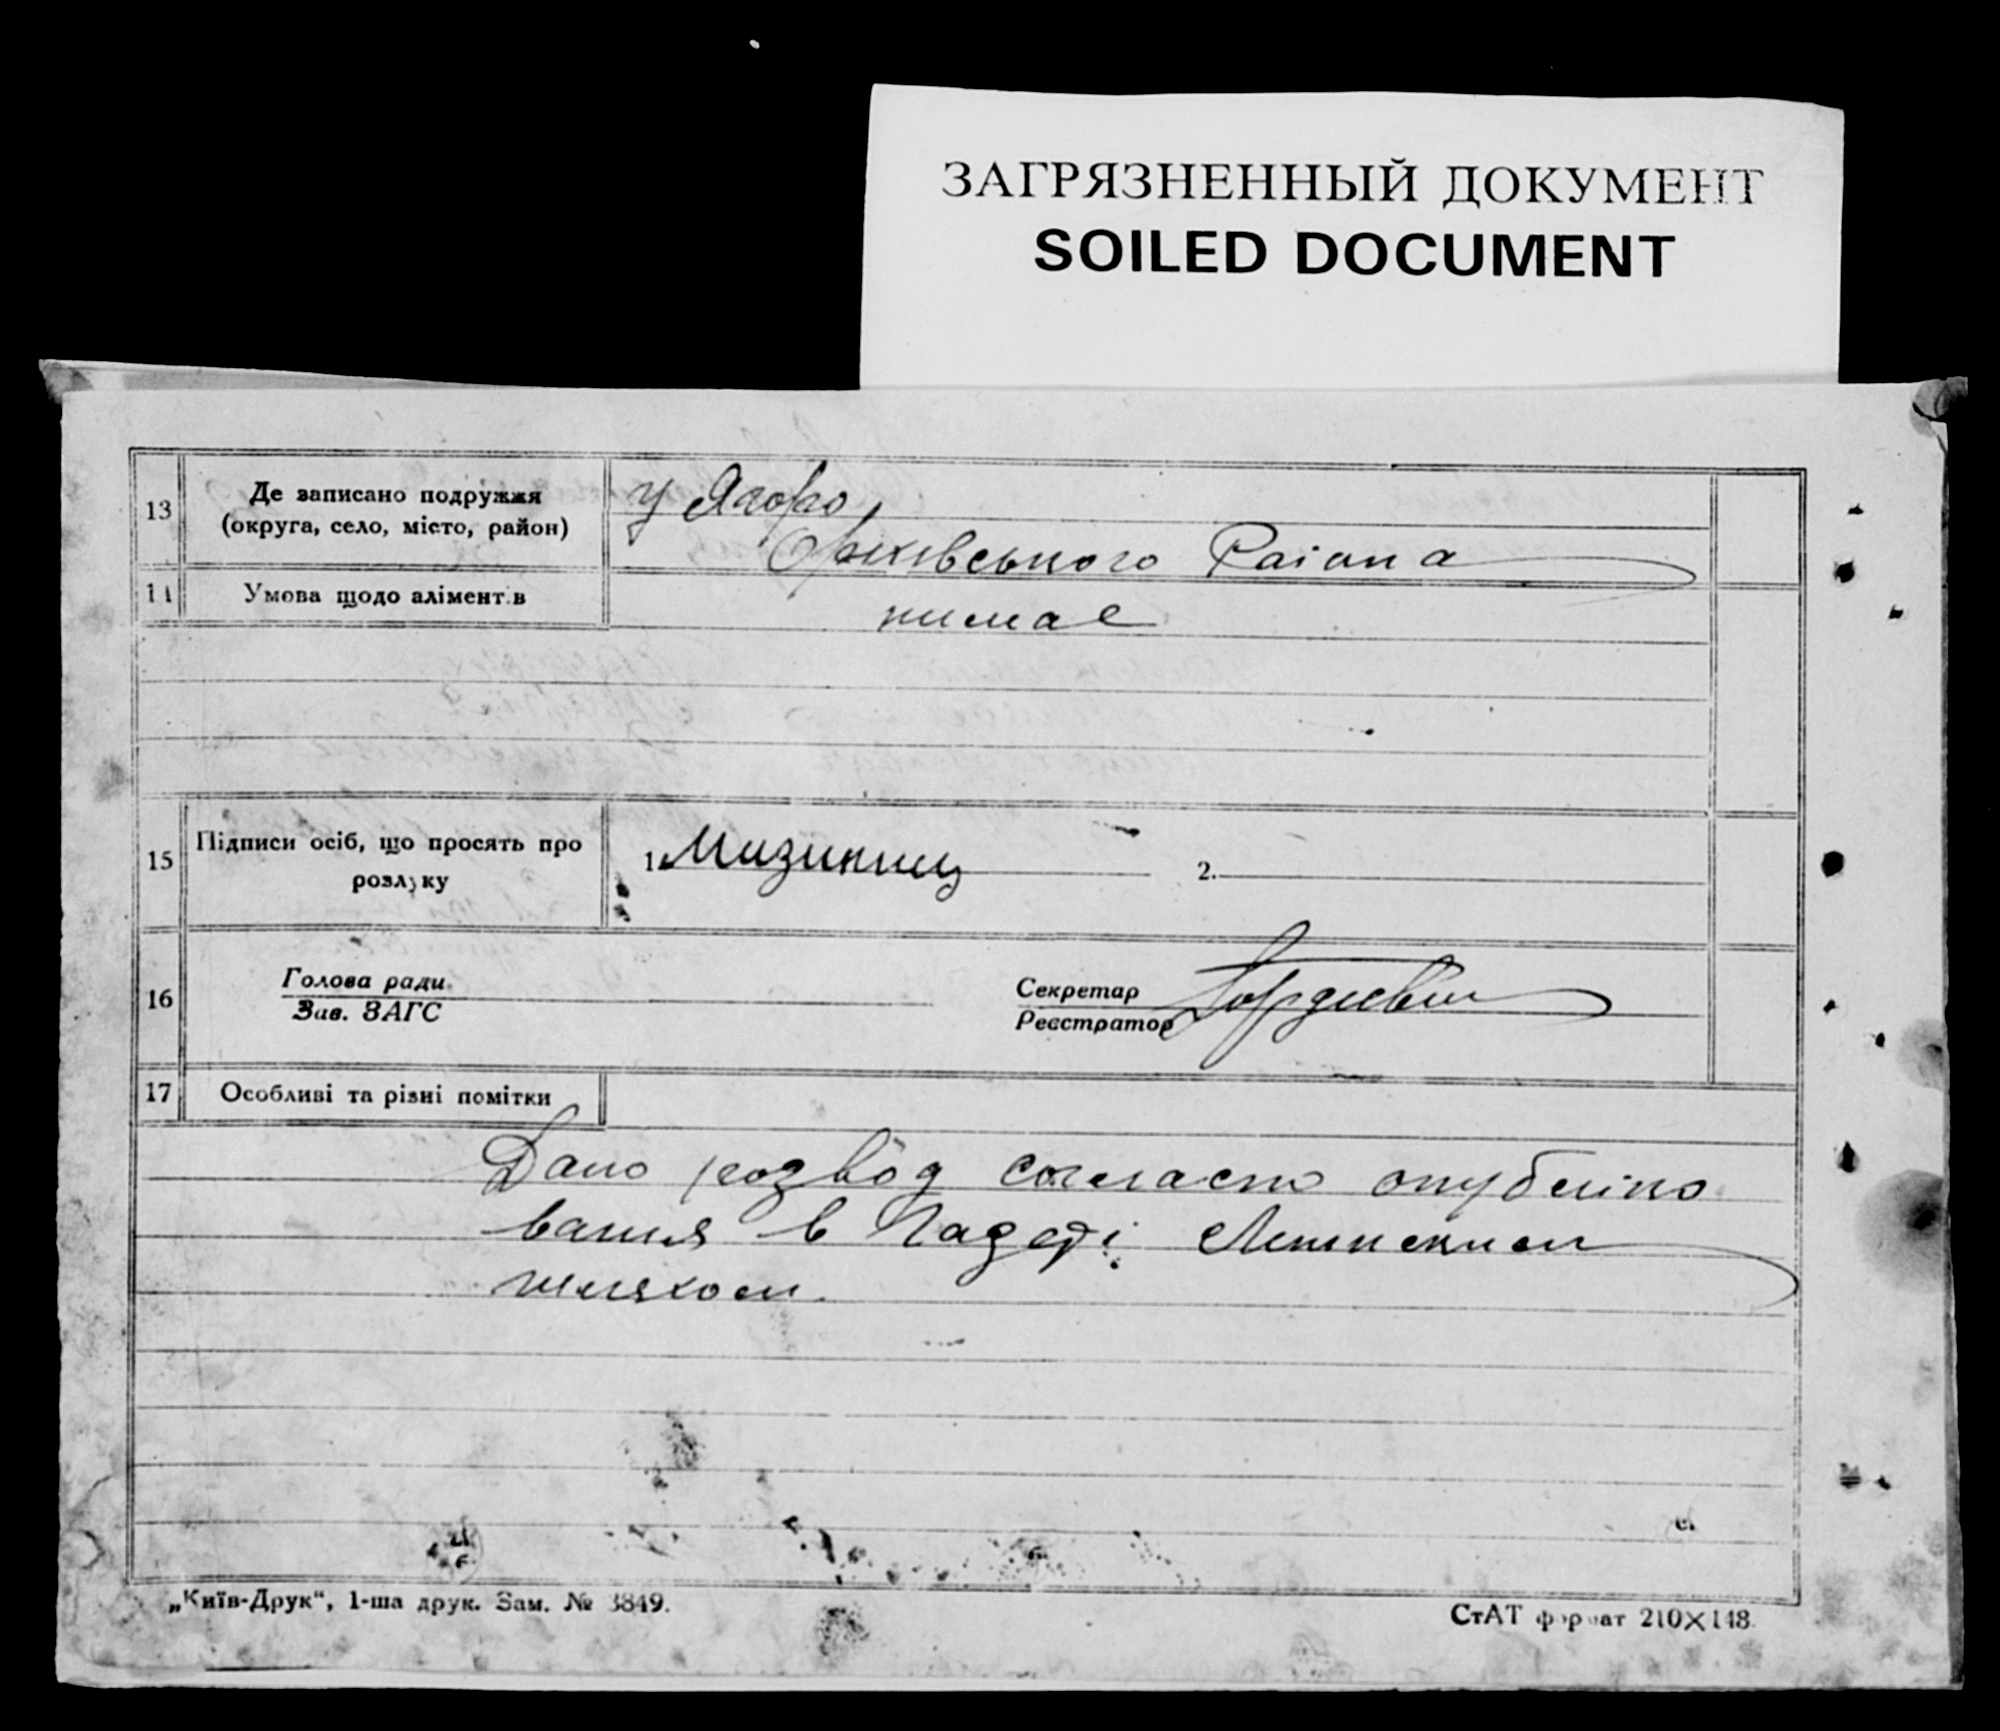 ЗАГРЯЗНЕННЫЙ ДОКУМЕНТ
SOILED DOCUMENT
13
Де записано подружжя
(округа, село, місто, район)
У
Оріхівського Раіона
14
Умова щодо алімент.в
нимае
15
Підписи осіб, що просять про
розлуку
1. Мизинец
2.
16
Голова ради
Зав. ЗАГС
Секретар
Реєстратор
17
Особливі та різні помітки
Дано розвод согласно опубліко
вания в Газеті Ленинским
шляхом.
„Київ-Друк“, 1-ша друк. Зам. № 3849.
СтАТ формат 210×148.